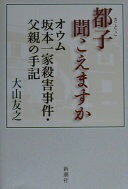 都子
さとこ
聞こえますか
オウム
坂本一家殺害事件・
父親の手記
大山友之
新潮社